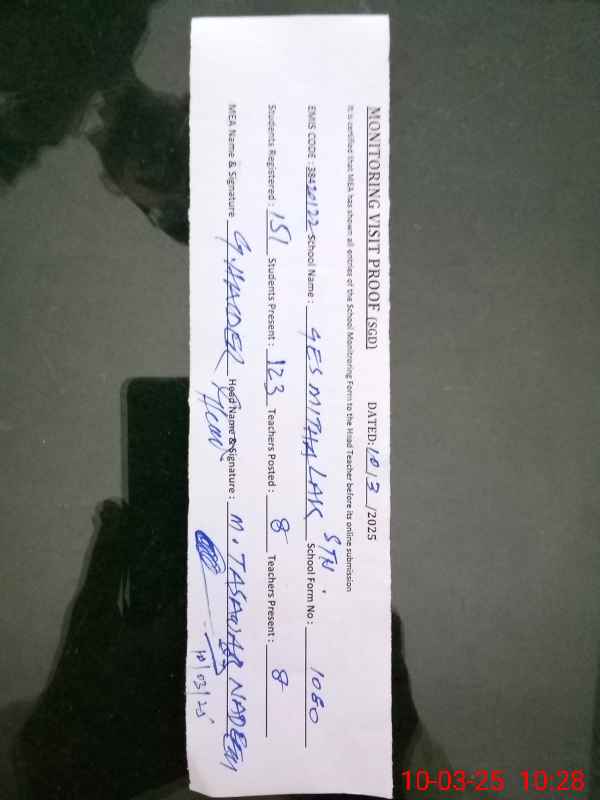 MONITORING VISIT PROOF (SGD) DATED: 10/3/2025
It is certified that MEA has shown all entries of the School Monitroring Form to the Head Teacher before its online submission
EMIS CODE: 38420122 School Name: GES MITHA LAK STN. School Form No: 1080
Students Registered: 151 Students Present: 123 Teachers Posted: 8 Teachers Present: 8
MEA Name & Signature G. HAIDER Head Name & Signature: M. TASAWAR NADEEM
10/03/25
10-03-25 10:28